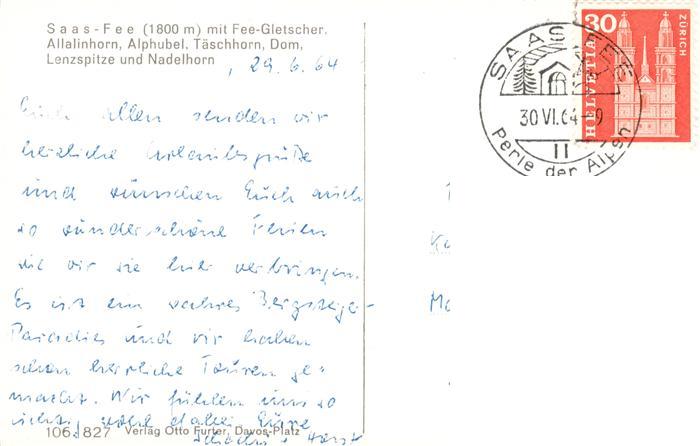 Saas-Fee (1800 m) mit Fee-Gletscher,
Allalinhorn, Alphubel, Täschhorn, Dom,
Lenzspitze und Nadelhorn
, 29.6.64
Euch allen senden wir
herzliche Urlaubsgrüße
und wünschen Euch auch
so wunderschöne Ferien
wie wir sie hier verbringen.
Es ist ein wahres Bergsteiger-
Paradies und wir haben
schon herrliche Touren ge-
macht. Wir fühlen uns so
richtig wohl dabei Eure
Horst
106.827 Verlag Otto Furter, Davos-Platz
SAAS-FEE
30 VI.64-9
II
Perle der Alpen
30
ZÜRICH
HELVETIA